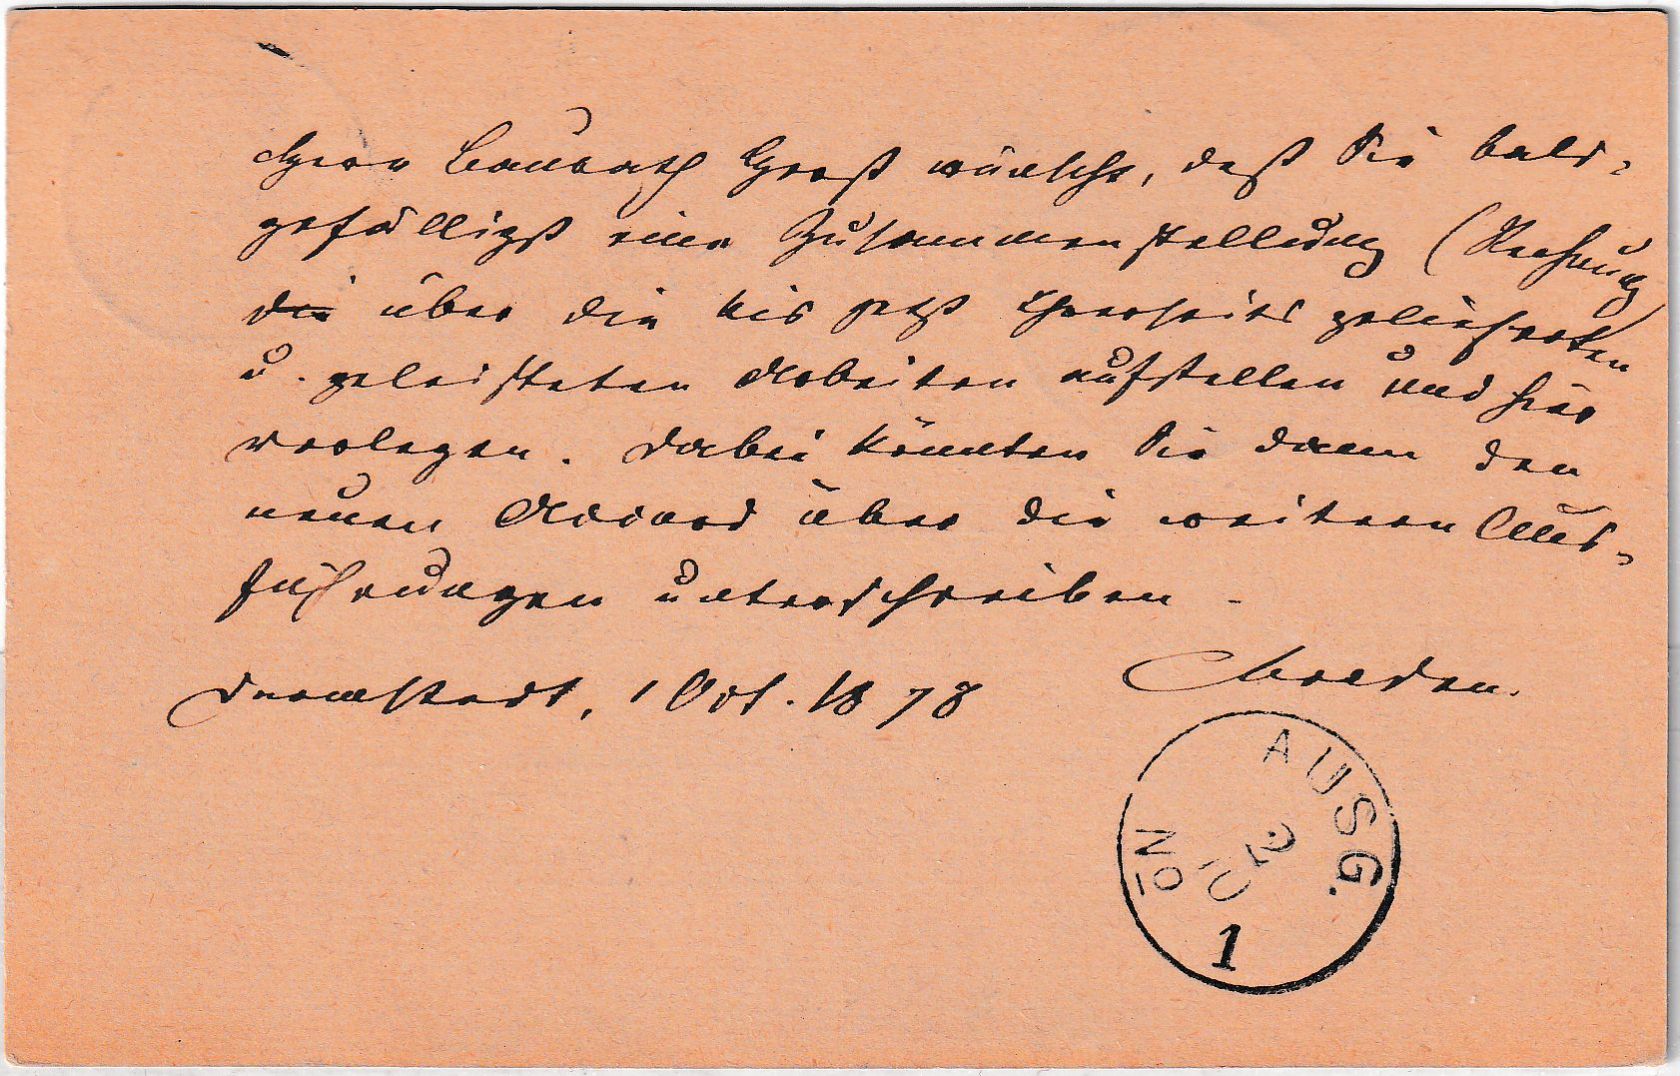 Herr Baurath Groß wünscht, daß Sie bald-
gefälligst eine Zusammenstellung (Rechnung
die über die bis jetzt Ihrerseits gelieferten
u. geleisteten Arbeiten aufstellen und hier
vorlegen. Dabei könnten Sie dann den
neuen Accord über die weitern Aus-
führungen unterschreiben.
Darmstadt, 1 Oct. 1878
AUSG.
2
10
No
1